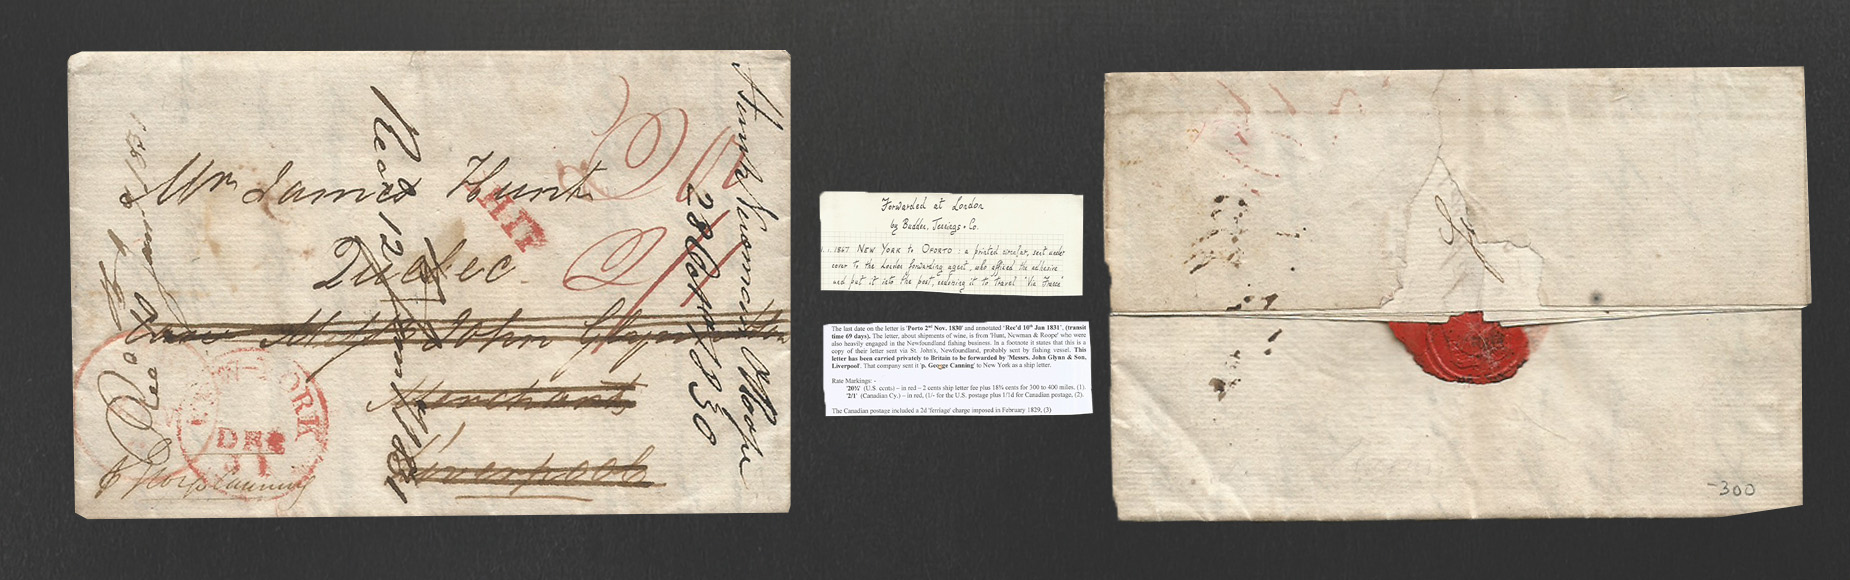 Mr James Hunt
Quebec
care Messrs John Glynn & Son
Merchants
Liverpool
p George Canning
NEW-YORK
DEC
31
SHIP
Hunt Newman & Roope
28 Octr 1830
Recd 12 Jany 1831
Forwarded at London
by Budden, Jennings & Co.
1.1857 NEW YORK to OPORTO : a printed circular, sent under
cover to the London forwarding agent, who affixed the adhesive
and put it into the post, endorsing it to travel 'Via France'
The last date on the letter is 'Porto 2nd Nov. 1830' and annotated 'Rec'd 10th Jan 1831', (transit
time 69 days). The letter, about shipments of wine, is from 'Hunt, Newman & Roope' who were
also heavily engaged in the Newfoundland fishing business. In a footnote it states that this is a
copy of their letter sent via St. John's, Newfoundland, probably sent by fishing vessel. This
letter has been carried privately to Britain to be forwarded by 'Messrs. John Glynn & Son,
Liverpool'. That company sent it 'p. George Canning' to New York as a ship letter.
Rate Markings: -
'20¾' (U.S. cents) – in red – 2 cents ship letter fee plus 18¾ cents for 300 to 400 miles, (1).
'2/1' (Canadian Cy.) – in red, (1/- for the U.S. postage plus 1/1d for Canadian postage, (2).
The Canadian postage included a 2d 'ferriage' charge imposed in February 1829, (3)
-300